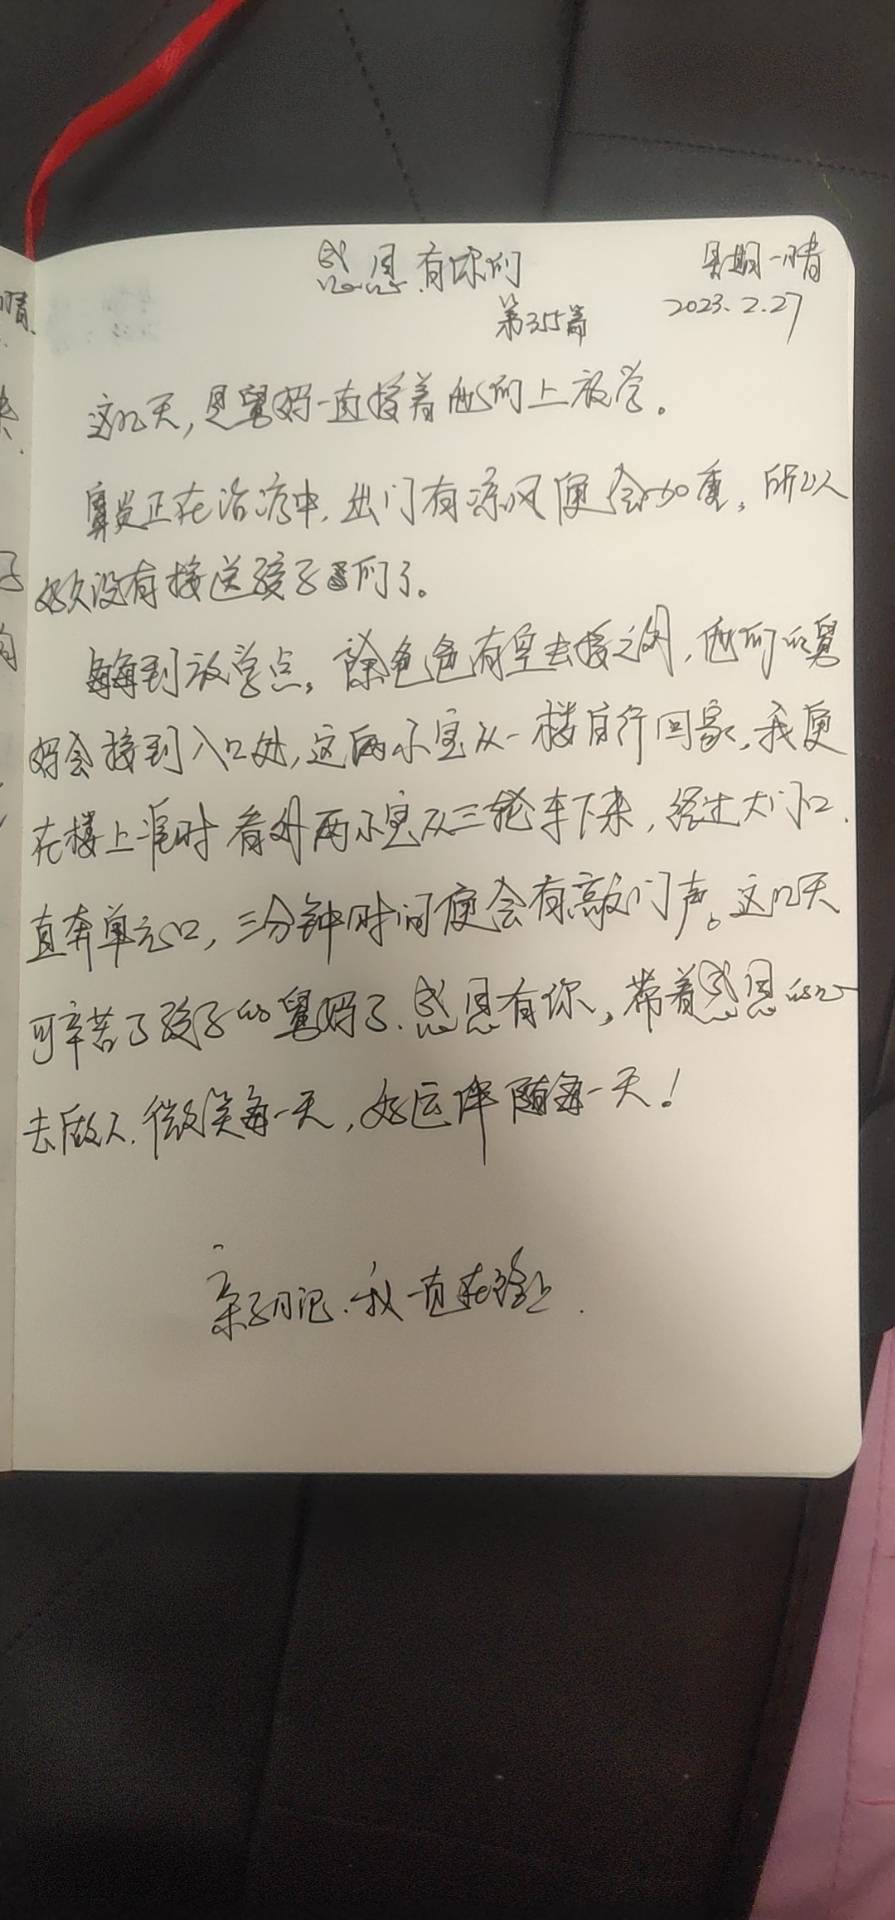 感恩有你们
星期一 晴
第355篇
2023.2.27
这几天，是舅妈一直接着他们上放学。
鼻炎正在治疗中，出门有凉风便会加重，所以
好久没有接送孩子们了。
每到放学点，除爸爸有空去接之外，他们的舅
妈会接到入口处，这两小宝从一楼自行回家，我便
在楼上准时看外两小宝从三轮车下来，经过大门口，
直奔单元口，三分钟时间便会有敲门声。这几天
可辛苦了孩子的舅妈了。感恩有你，带着感恩的心
去做人，微笑每一天，好运伴随每一天！
亲子日记，我一直在路上.
晴